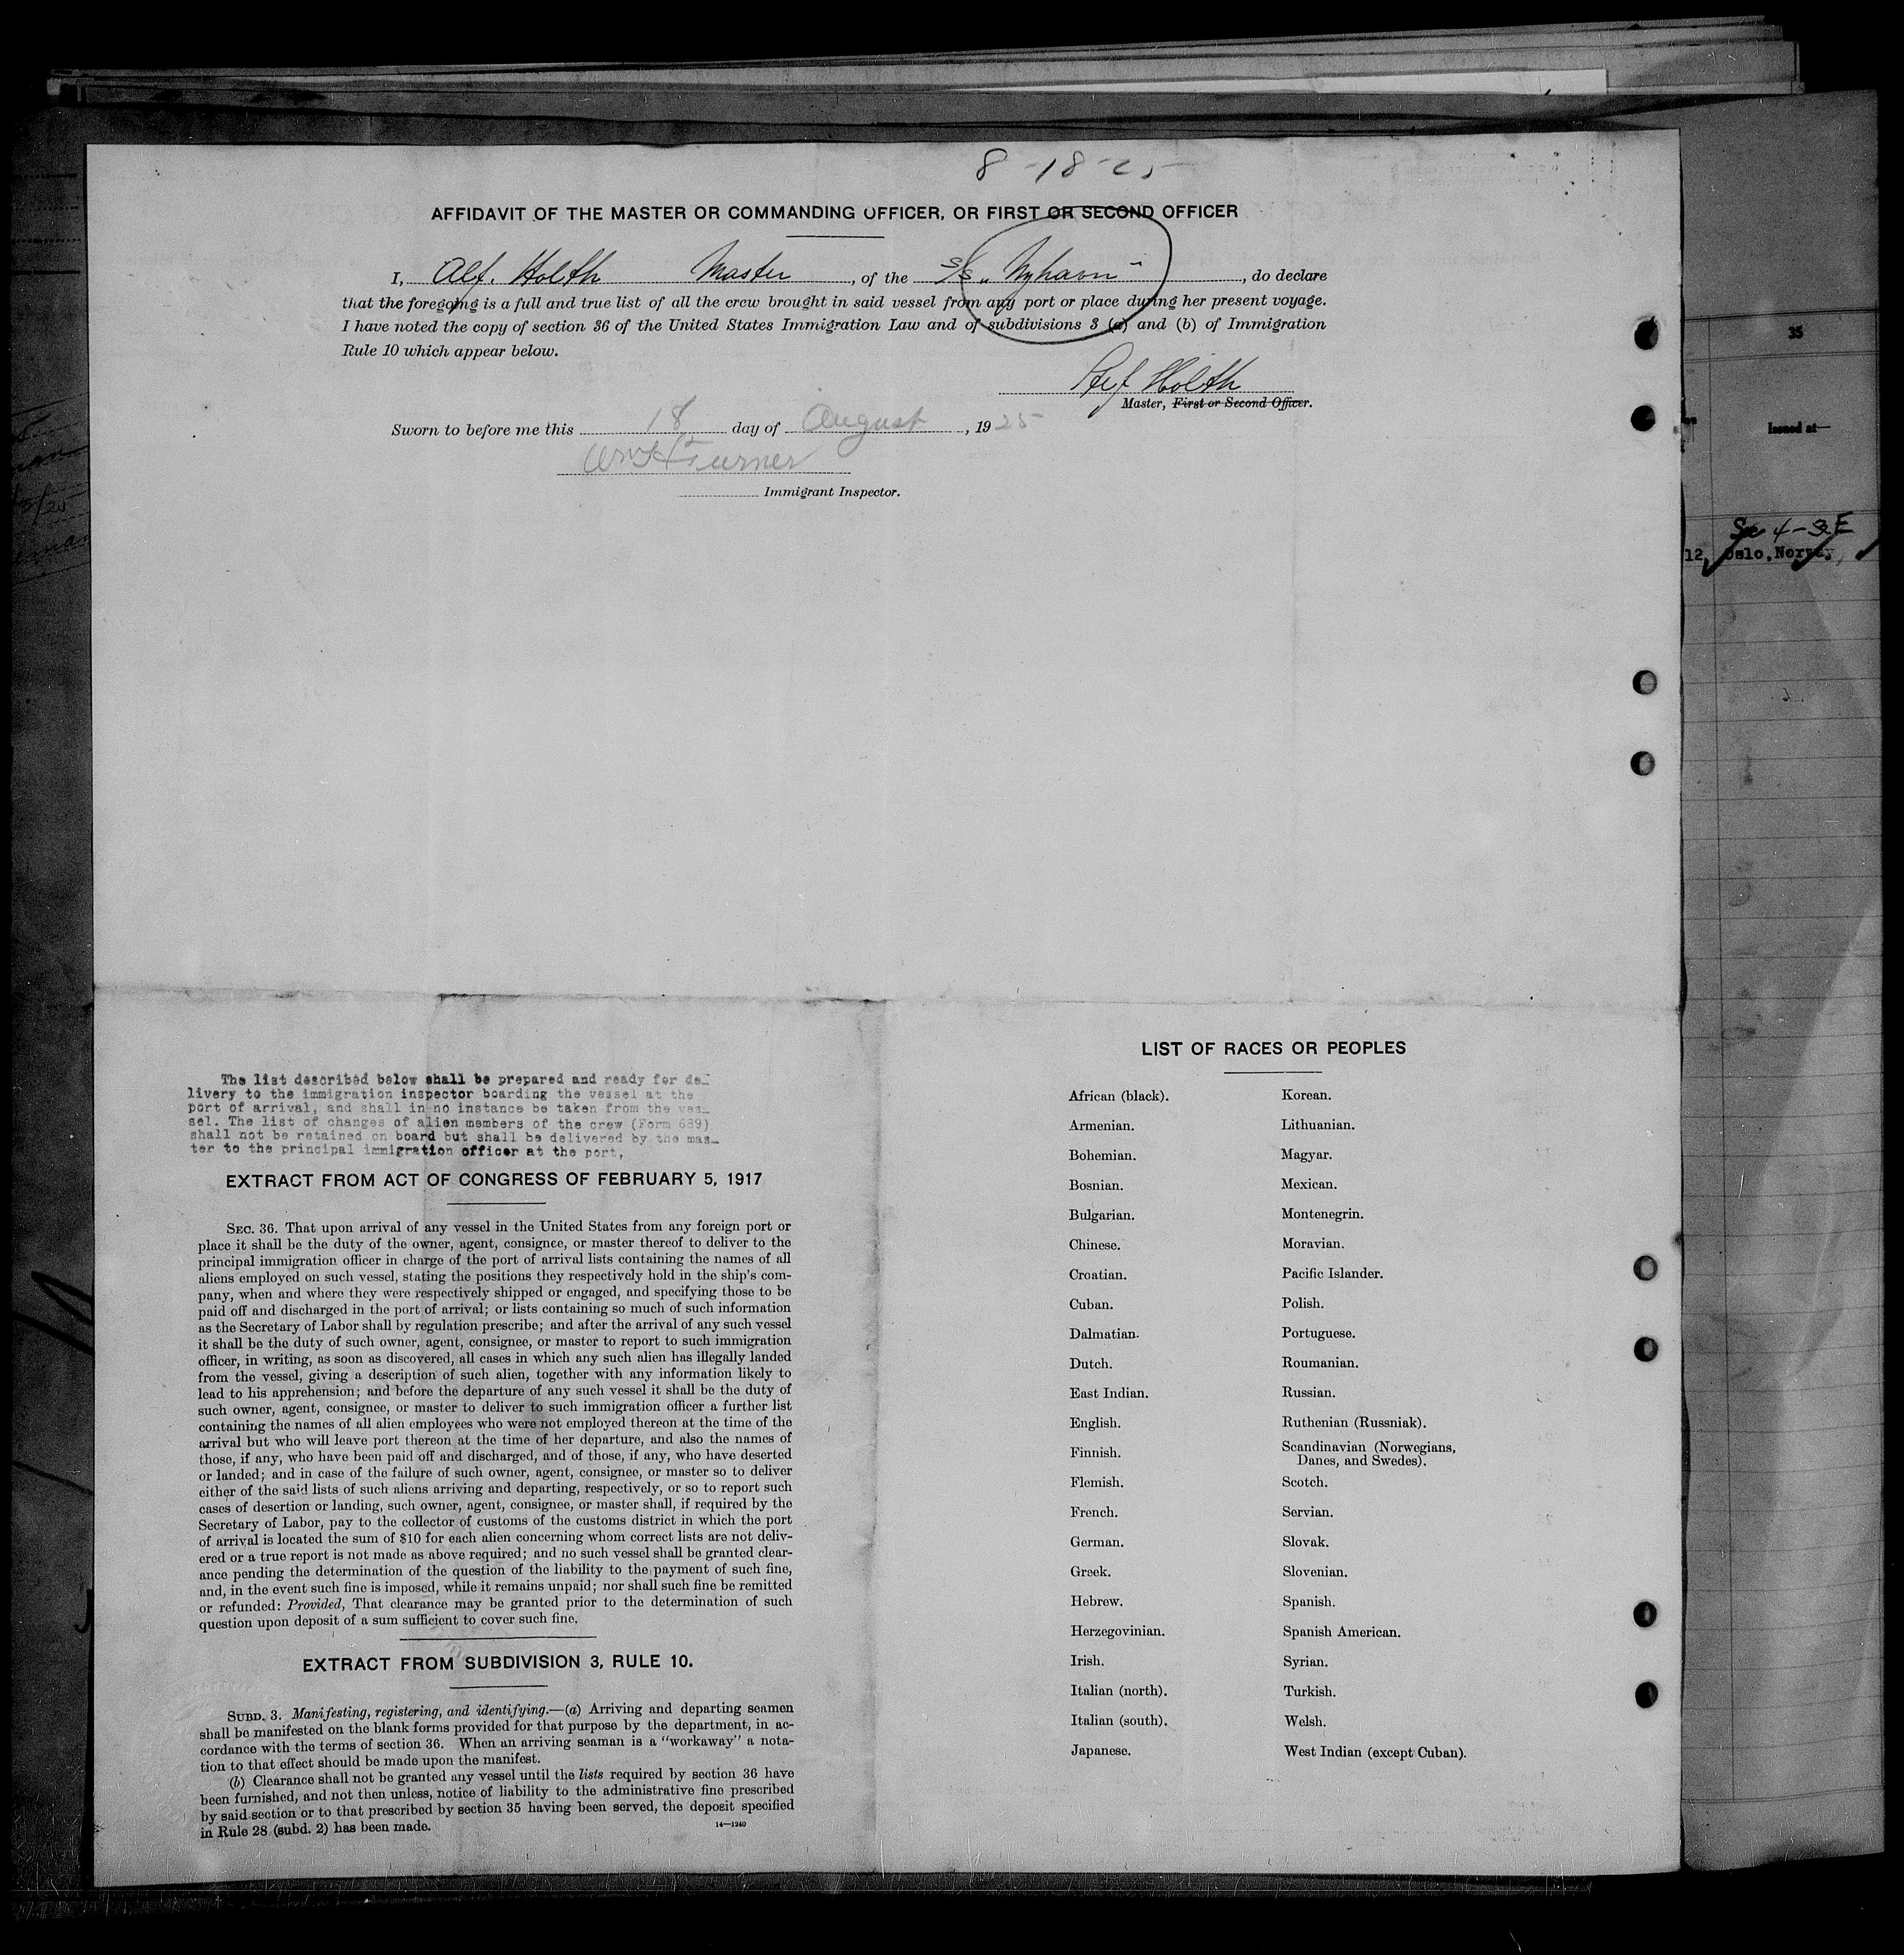 8-18-25
AFFIDAVIT OF THE MASTER OR COMMANDING OFFICER, OR FIRST OR SECOND OFFICER
I, Alf. Holth Master, of the S/S „Nyhavn", do declare
that the foregoing is a full and true list of all the crew brought in said vessel from any port or place during her present voyage.
I have noted the copy of section 36 of the United States Immigration Law and of subdivisions 3 (a) and (b) of Immigration
Rule 10 which appear below.
Alf Holth
Master, First or Second Officer.
Sworn to before me this 18 day of August, 1925
Wm H Turner
Immigrant Inspector.
The list described below shall be prepared and ready for de-
livery to the immigration inspector boarding the vessel at the
port of arrival, and shall in no instance be taken from the ves-
sel. The list of changes of alien members of the crew (Form 689)
shall not be retained on board but shall be delivered by the mas-
ter to the principal immigration officer at the port,
EXTRACT FROM ACT OF CONGRESS OF FEBRUARY 5, 1917
SEC. 36. That upon arrival of any vessel in the United States from any foreign port or
place it shall be the duty of the owner, agent, consignee, or master thereof to deliver to the
principal immigration officer in charge of the port of arrival lists containing the names of all
aliens employed on such vessel, stating the positions they respectively hold in the ship's com-
pany, when and where they were respectively shipped or engaged, and specifying those to be
paid off and discharged in the port of arrival; or lists containing so much of such information
as the Secretary of Labor shall by regulation prescribe; and after the arrival of any such vessel
it shall be the duty of such owner, agent, consignee, or master to report to such immigration
officer, in writing, as soon as discovered, all cases in which any such alien has illegally landed
from the vessel, giving a description of such alien, together with any information likely to
lead to his apprehension; and before the departure of any such vessel it shall be the duty of
such owner, agent, consignee, or master to deliver to such immigration officer a further list
containing the names of all alien employees who were not employed thereon at the time of the
arrival but who will leave port thereon at the time of her departure, and also the names of
those, if any, who have been paid off and discharged, and of those, if any, who have deserted
or landed; and in case of the failure of such owner, agent, consignee, or master so to deliver
either of the said lists of such aliens arriving and departing, respectively, or so to report such
cases of desertion or landing, such owner, agent, consignee, or master shall, if required by the
Secretary of Labor, pay to the collector of customs of the customs district in which the port
of arrival is located the sum of $10 for each alien concerning whom correct lists are not deliv-
ered or a true report is not made as above required; and no such vessel shall be granted clear-
ance pending the determination of the question of the liability to the payment of such fine,
and, in the event such fine is imposed, while it remains unpaid; nor shall such fine be remitted
or refunded: Provided, That clearance may be granted prior to the determination of such
question upon deposit of a sum sufficient to cover such fine.
EXTRACT FROM SUBDIVISION 3, RULE 10.
SUBD. 3. Manifesting, registering, and identifying.—(a) Arriving and departing seamen
shall be manifested on the blank forms provided for that purpose by the department, in ac-
cordance with the terms of section 36. When an arriving seaman is a "workaway" a nota-
tion to that effect should be made upon the manifest.
(b) Clearance shall not be granted any vessel until the lists required by section 36 have
been furnished, and not then unless, notice of liability to the administrative fine prescribed
by said section or to that prescribed by section 35 having been served, the deposit specified
in Rule 28 (subd. 2) has been made.
14—1240
LIST OF RACES OR PEOPLES
African (black).
Armenian.
Bohemian.
Bosnian.
Bulgarian.
Chinese.
Croatian.
Cuban.
Dalmatian.
Dutch.
East Indian.
English.
Finnish.
Flemish.
French.
German.
Greek.
Hebrew.
Herzegovinian.
Irish.
Italian (north).
Italian (south).
Japanese.
Korean.
Lithuanian.
Magyar.
Mexican.
Montenegrin.
Moravian.
Pacific Islander.
Polish.
Portuguese.
Roumanian.
Russian.
Ruthenian (Russniak).
Scandinavian (Norwegians,
Danes, and Swedes).
Scotch.
Servian.
Slovak.
Slovenian.
Spanish.
Spanish American.
Syrian.
Turkish.
Welsh.
West Indian (except Cuban).
35
Issued at—
4-3E
12, Oslo, Norway,